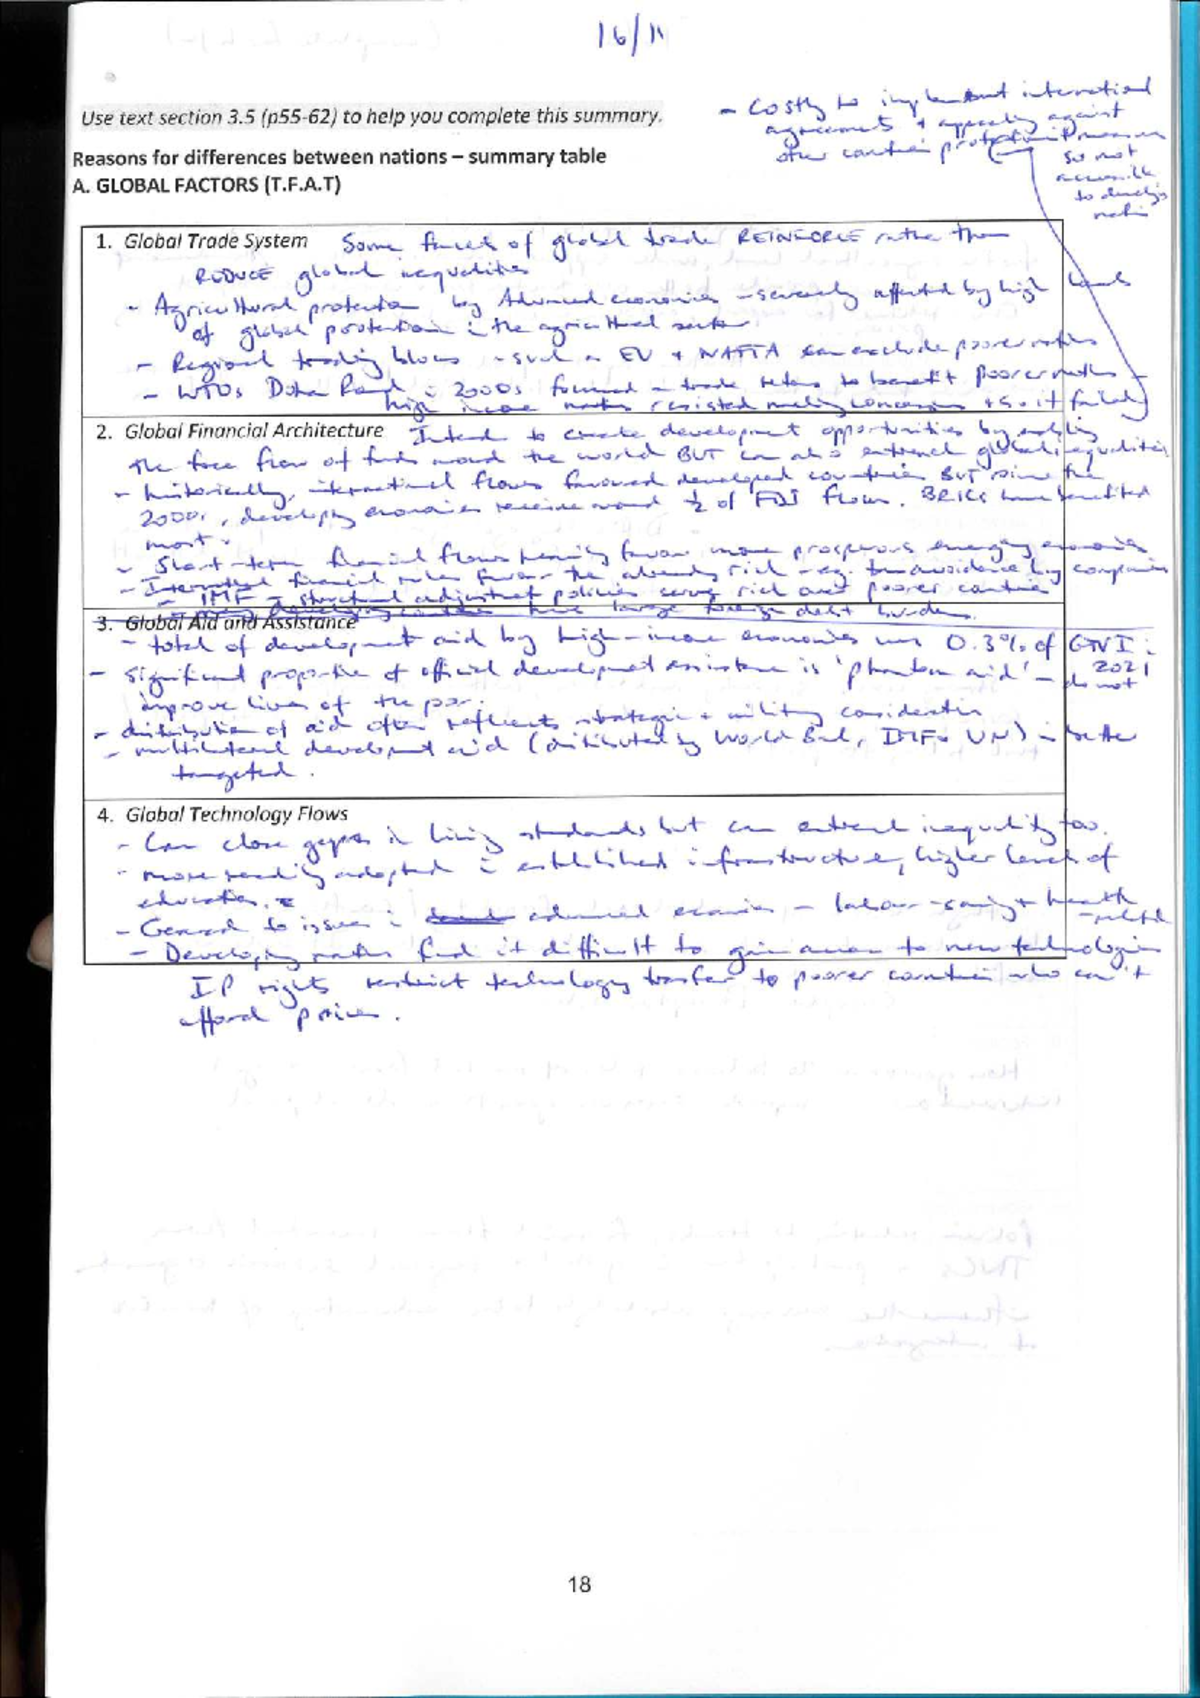 16/11
Use text section 3.5 (p55-62) to help you complete this summary.
- Costly to implement international
agreements + appealing against
other countries protectionist measures
so not
accessible
to develop'g
nations
Reasons for differences between nations – summary table
A. GLOBAL FACTORS (T.F.A.T)
1. Global Trade System Some facets of global trade REINFORCE rather than
REDUCE global inequalities
- Agricultural protection by Advanced economies - severely affected by high levels
of global protection in the agricultural sector
- Regional trading blocs - such as EU + NAFTA can exclude poorer nations
- WTOs Doha Round in 2000s focused on trade reforms to benefit poorer nations -
high income nations resisted making concessions + so it failed
2. Global Financial Architecture Intends to create development opportunities by enabling
the free flow of funds around the world BUT can also entrench global inequalities
- historically, international flows favoured developed countries BUT since the
2000s, developing economies receive around ½ of FDI flows. BRICs have benefited
most.
- Short-term financial flows heavily favour more prosperous emerging economies
- International financial rules favour the already rich - eg. tax avoidance by companies
- IMF - structural adjustment policies serve rich and poorer countries
- many developing countries have large foreign debt burdens.
3. Global Aid and Assistance
- total of development aid by high-income economies was 0.3% of GNI in
2021
- significant proportion of official development assistance is 'phantom aid' - do not
improve lives of the poor.
- distribution of aid often reflects strategic + military consideration
- multilateral development aid (distributed by World Bank, IMF + UN) is better
targeted.
4. Global Technology Flows
- Can close gaps in living standards but can entrench inequality too.
- more readily adopted in established infrastructure, higher levels of
education.
- Geared to issues in advanced economies - labour-saving + health
-related
- Developing nations find it difficult to gain access to new technologies
IP rights restrict technology transfer to poorer countries who can't
afford prices.
18